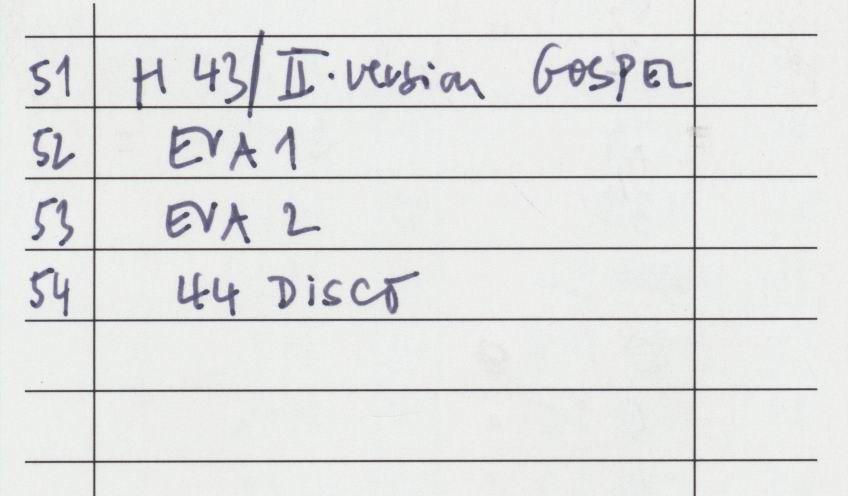 51 H 43/II. version GOSPEL
52 EVA 1
53 EVA 2
54 44 DiSCO